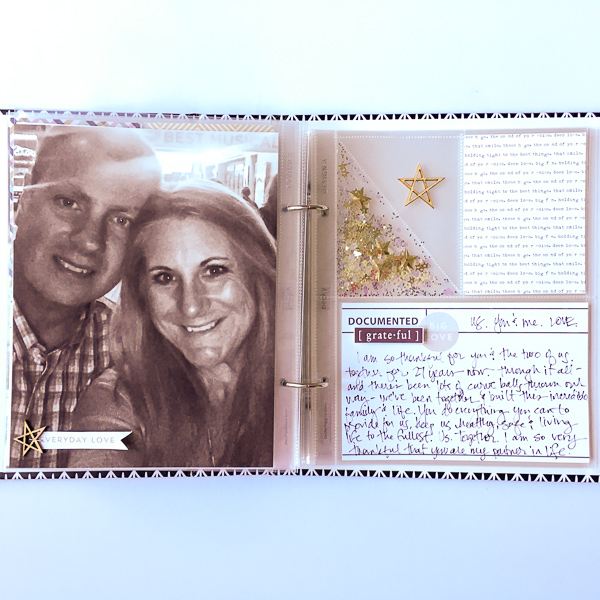 BEST
EVERYDAY LOVE
holding tight to the best things. that smile.
DOCUMENTED
[ grate·ful ]
BIG
LOVE
us. you & me. LOVE
I am so thankful for you & the two of us.
together for 27 years now. through it all -
and there's been lots of curve balls thrown our
way - we've been together & built this incredible
family & life. You do everything you can to
provide for us, keep us healthy, safe & living
life to the fullest. Us. Together. I am so very
thankful that you are my partner in life